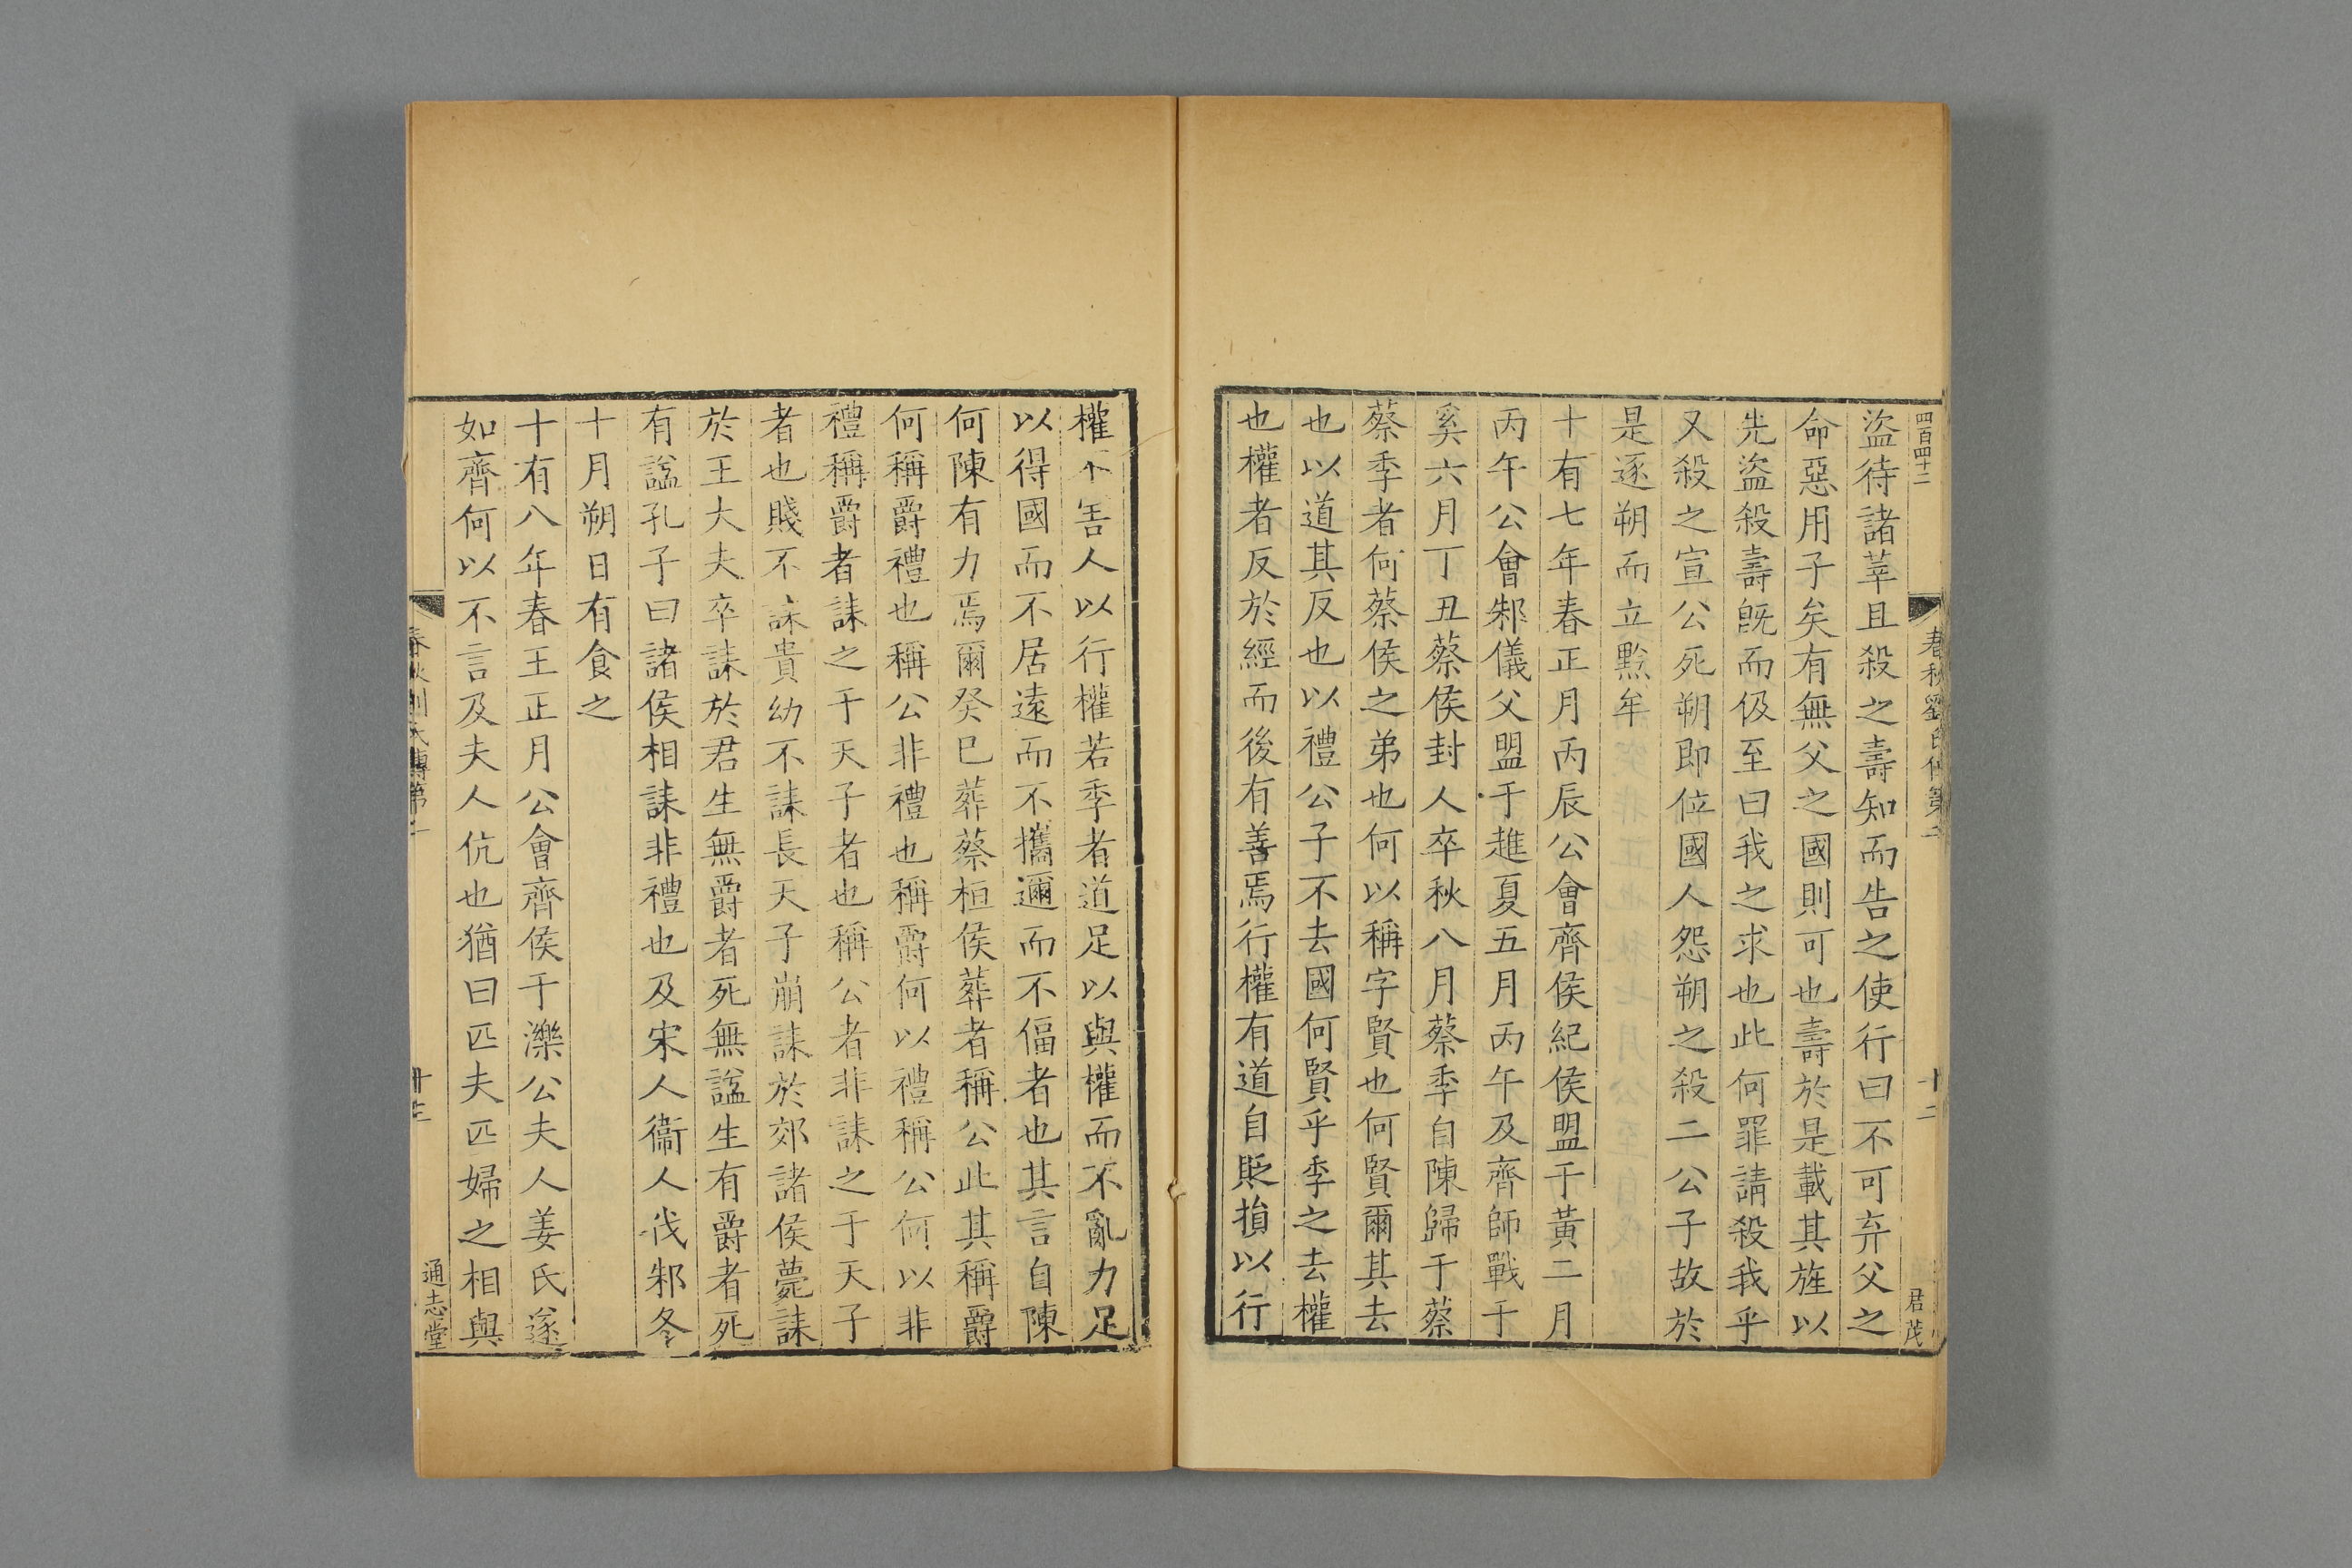 四百四十二
春秋劉氏傳第二
十二
君茂
盜待諸莘且殺之壽知而告之使行曰不可弃父之
命惡用子矣有無父之國則可也壽於是載其旌以
先盜殺壽旣而伋至曰我之求也此何罪請殺我乎
又殺之宣公死朔即位國人怨朔之殺二公子故於
是逐朔而立黔牟
十有七年春正月丙辰公會齊侯紀侯盟于黃二月
丙午公會邾儀父盟于趡夏五月丙午及齊師戰于
奚六月丁丑蔡侯封人卒秋八月蔡季自陳歸于蔡
蔡季者何蔡侯之弟也何以稱字賢也何賢爾其去
也以道其反也以禮公子不去國何賢乎季之去權
也權者反於經而後有善焉行權有道自貶損以行
權不害人以行權若季者道足以與權而不亂力足
以得國而不居遠而不攜邇而不偪者也其言自陳
何陳有力焉爾癸巳葬蔡桓侯葬者稱公此其稱爵
何稱爵禮也稱公非禮也稱爵何以禮稱公何以非
禮稱爵者誄之于天子者也稱公者非誄之于天子
者也賤不誄貴幼不誄長天子崩誄於郊諸侯薨誄
於王大夫卒誄於君生無爵者死無諡生有爵者死
有諡孔子曰諸侯相誄非禮也及宋人衞人伐邾冬
十月朔日有食之
十有八年春王正月公會齊侯于濼公夫人姜氏遂
如齊何以不言及夫人伉也猶曰匹夫匹婦之相與
春秋劉氏傳第二
通志堂